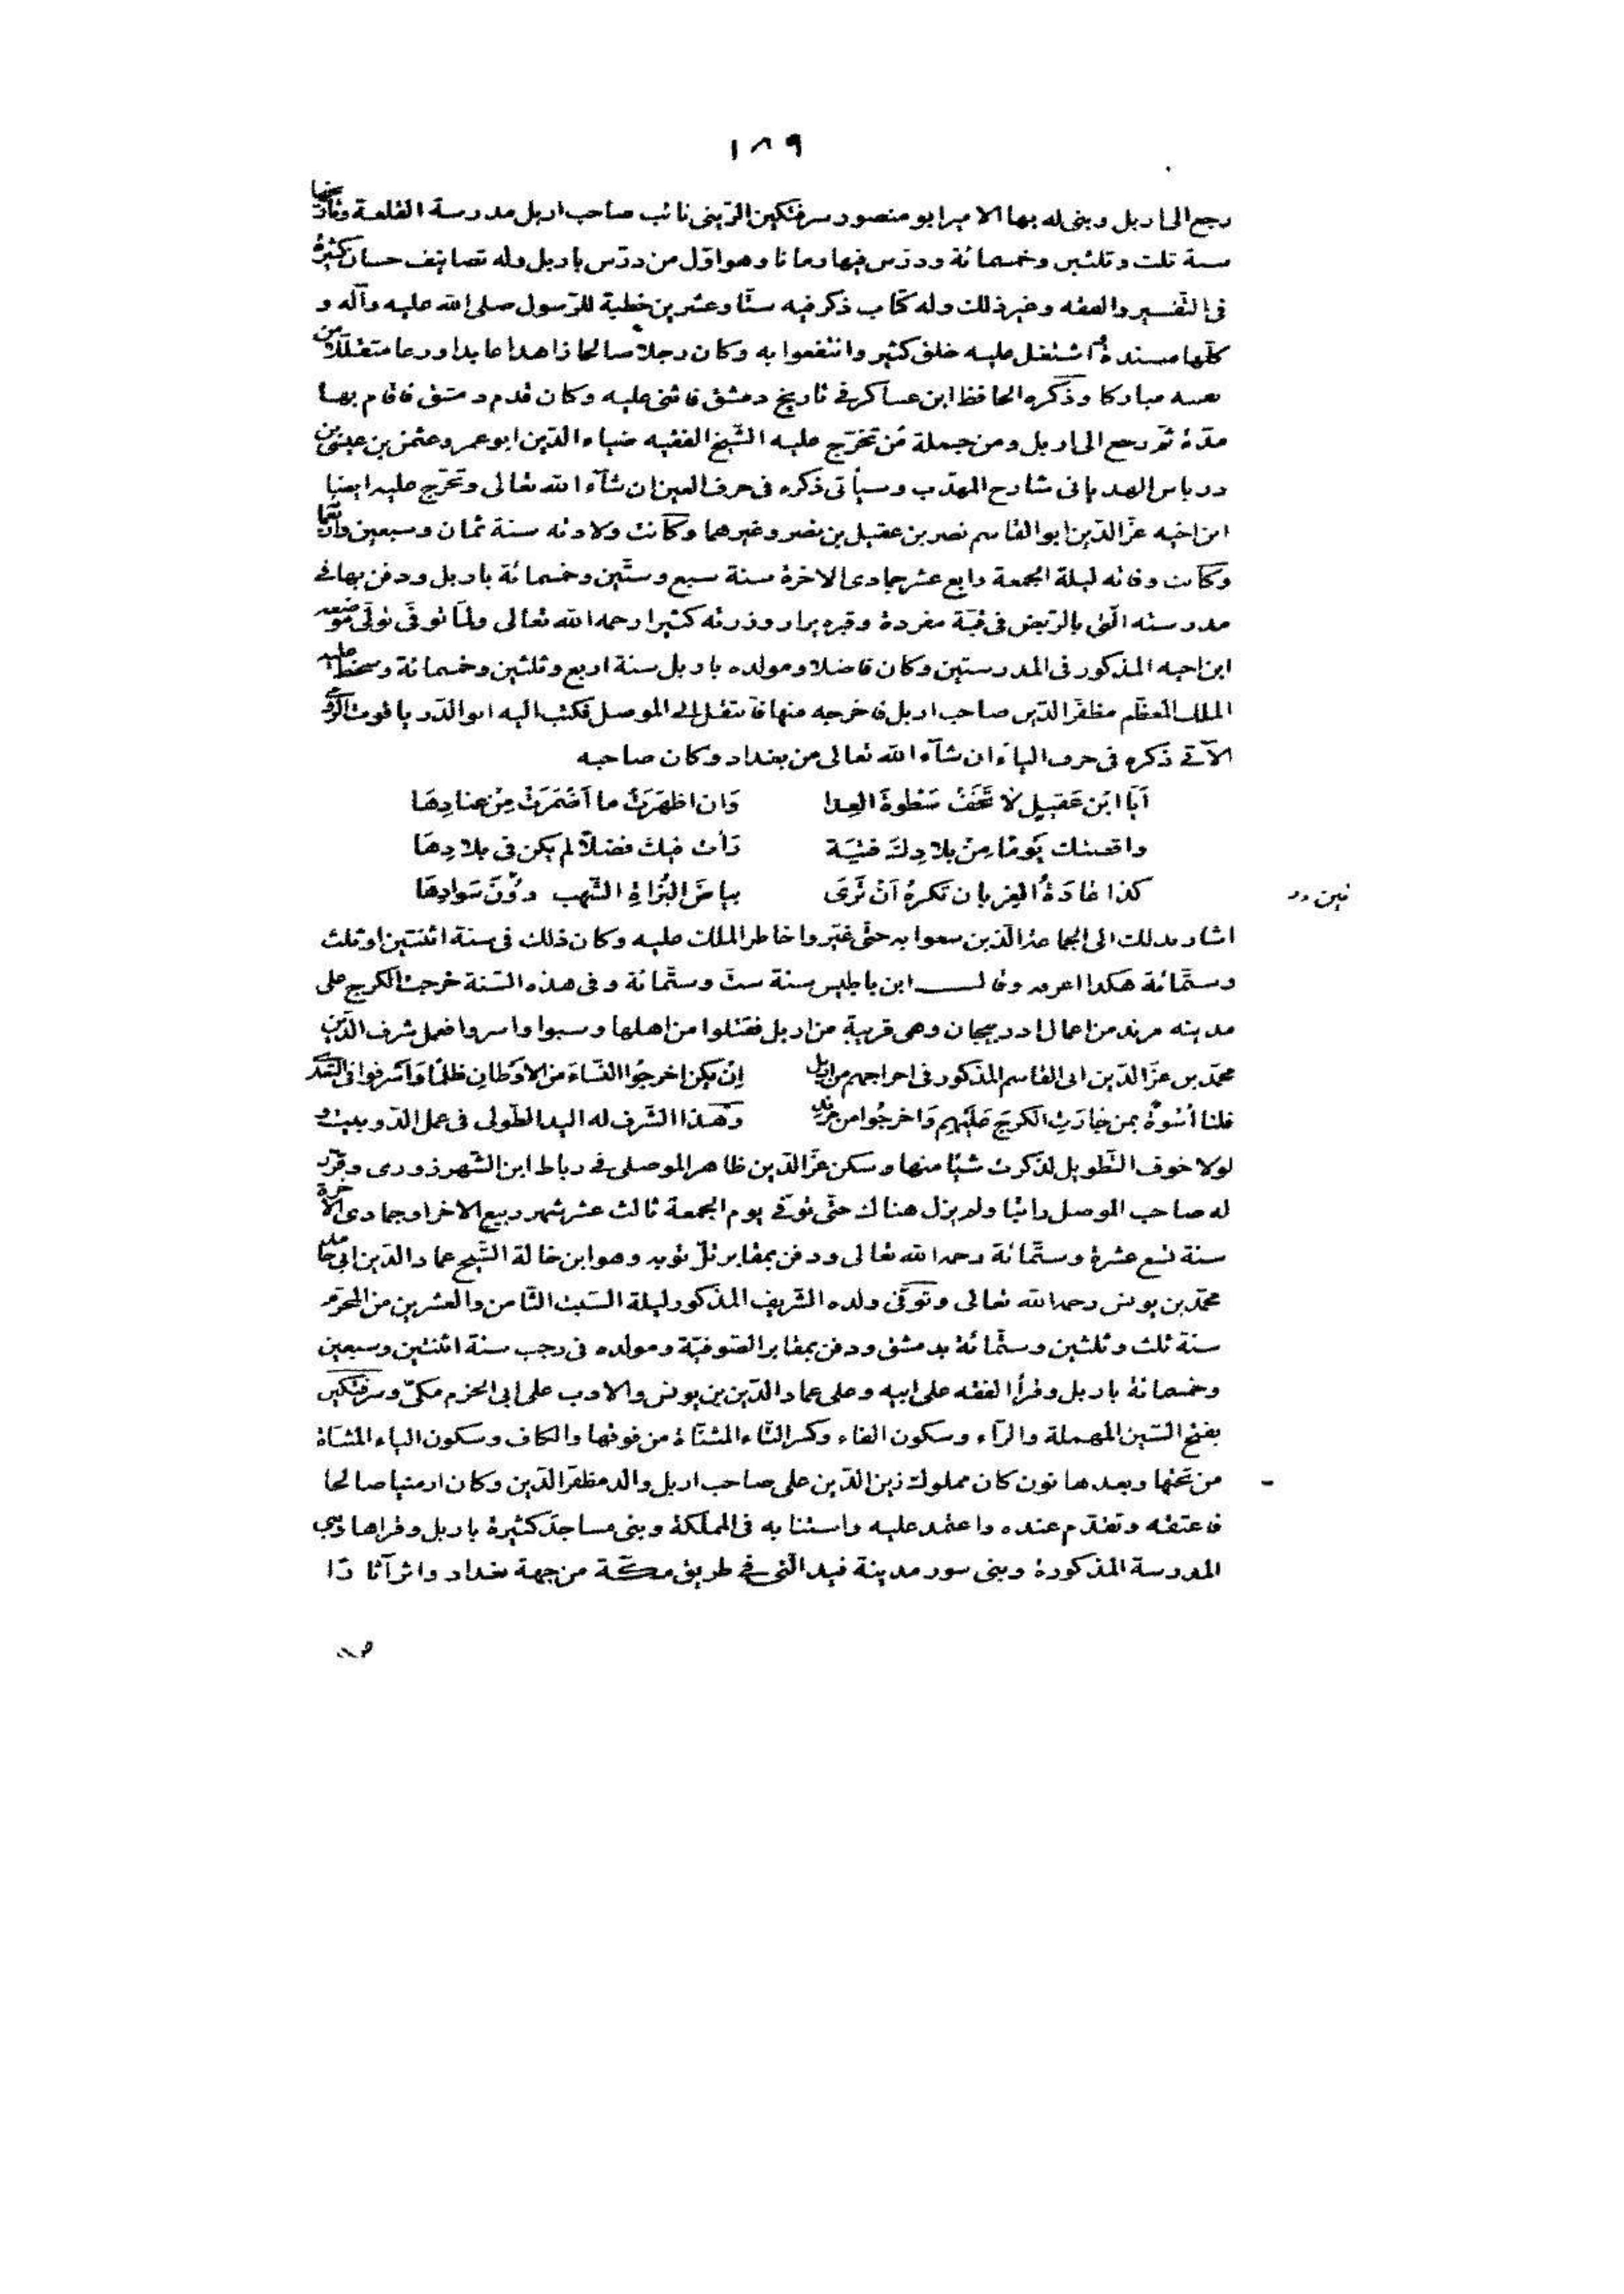 ١٨٩
رجع الى اربل وبنى له بها الامير ابو منصور سرفتكين الزينى نائب صاحب اربل مدرسة القلعة وتاريخها
سنة ثلث وثلثين وخمسمائة ودرّس فيها زمانا وهو اوّل من درّس باربل وله تصانيف حسان كثيرة
فى التّفسير والفقه وغير ذلك وله كتاب ذكر فيه ستّا وعشرين خطبة للرّسول صلى الله عليه وآله و
كلّها مسندة اشتغل عليه خلق كثير وانتفعوا به وكان رجلا صالحا زاهدا عابدا ورعا متقلّلا من
نفسه مباركا وذكره الحافظ ابن عساكر فى تاريخ دمشق فاثنى عليه وكان قدم دمشق فاقام بها
مدّة ثمّ رجع الى اربل ومن جملة من تخرّج عليه الشّيخ الفقيه ضياء الدّين ابو عمرو عثمن بن عيسى بن
درباس الهدبانى شارح المهذّب وسيأتى ذكره فى حرف العين ان شآء الله تعالى وتخرّج عليه ايضا
ابن اخيه عزّ الدّين ابو القاسم نصر بن عقيل بن نصر وغيرهما وكانت ولادته سنة ثمان وسبعين واربعمائة
وكانت وفاته ليلة الجمعة رابع عشر جمادى الاخرة سنة سبع وستّين وخمسمائة باربل ودفن بها فى
مدرسته الّتى بالرّبض فى قبّة مفردة وقبره يزار وزرته كثيرا رحمه الله تعالى ولمّا توفّى تولّى موضعه
ابن اخيه المذكور فى المدرستين وكان فاضلا ومولده باربل سنة اربع وثلثين وخمسمائة وسخط عليه
الملك المعظّم مظفّر الدّين صاحب اربل فاخرجه منها فانتقل الى الموصل فكتب اليه ابو الدّر ياقوت الرّومى
الآتى ذكره فى حرف الياء ان شآء الله تعالى من بغداد وكان صاحبه
اَيَا ابْن عَقيلٍ لا تَخَفْ سَطْوةَ العِدا وَان اظهَرَتْ ما اَضْمَرَتْ مِنْ عِنادِهَا
واقصتك يَومًا مِنْ بلادِكَ فتيَة رَأت فيك فضلاً لم يكن فى بلادِهَا
كذا عَادَةُ الغربان تكرهُ اَنْ تَرَى بياضَ البُزاةِ الشّهب دوُنَ سَوادِهَا
اشار بذلك الى الجماعة الّذين سعوا به حتّى غيّروا خاطر الملك عليه وكان ذلك فى سنة اثنتين او ثلث
وستّمائة هكذا اعرفه وقال ابن باطيس سنة ستّ وستّمائة وفى هذه السّنة خرجت الكرج على
مدينة مرند من اعمال اذربيجان وهى قريبة من اربل فقتلوا من اهلها وسبوا واسروا فعمل شرف الدّين
محمّد بن عزّ الدّين ابى القاسم المذكور فى اخراجهم من اربل اِنْ يكن اخرجُوا النّساءَ من الاوَطانِ ظلمًا وَاَسرفوا فى التعدّى
فلنا اُسْوةٌ بمن جارَتِ الكرج عَليَهِم وَاخرجُوا من مرند وهذا الشّرف له اليد الطّولى فى عمل الدّوبيت و
لولا خوف التّطويل لذكرت شيئا منها وسكن عزّ الدّين ظاهر الموصل فى رباط ابن الشّهرزورى وقرّر
له صاحب الموصل راتبا ولم يزل هناك حتّى توفّى يوم الجمعة ثالث عشر شهر ربيع الاخر او جمادى الاخرة
سنة تسع عشرة وستّمائة رحمه الله تعالى ودفن بمقابر تلّ توبه وهو ابن خالة الشّيخ عماد الدّين ابى حامد
محمّد بن يونس رحمه الله تعالى وتوفّى ولده الشّريف المذكور ليلة السّبت الثّامن والعشرين من المحرّم
سنة ثلث وثلثين وستّمائة بدمشق ودفن بمقابر الصّوفيّة ومولده فى رجب سنة اثنتين وسبعين
وخمسمائة باربل وقرأ الفقه على ابيه وعلى عماد الدّين بن يونس والادب على ابى الحزم مكىّ وسرفتكين
بفتح السّين المهملة والرّاء وسكون الفاء وكسر التّاء المثنّاة من فوقها والكاف وسكون الياء المثنّاة
من تحتها وبعدها نون كان مملوك زين الدّين على صاحب اربل والد مظفّر الدّين وكان ارمنيا صالحا
فاعتقه وتقدّم عنده واعتمد عليه واستنابه فى المملكة وبنى مساجد كثيرة باربل وقراها وبنى
المدرسة المذكورة وبنى سور مدينة فيد الّتى فى طريق مكّة من جهة بغداد واثر آثارًا